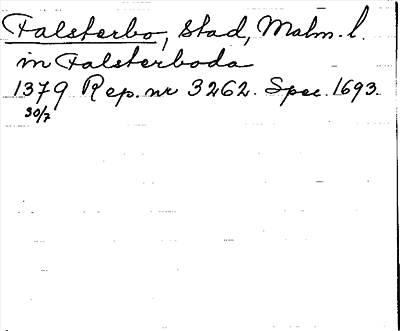 Falsterbo, stad, Malm. l.
in Falsterboda
1379 Rep. nr 3262. Spec. 1693.
30/7